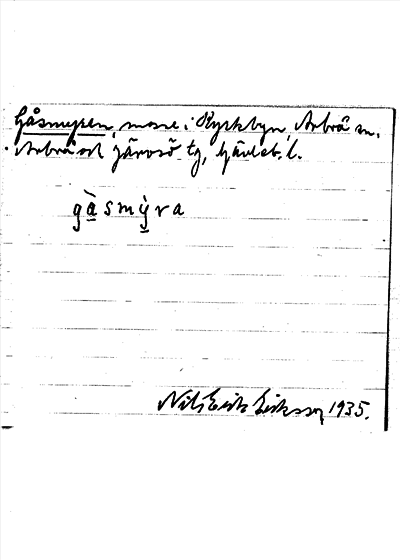 Gåsmyren, mosse i Kyrkbyn, Arbrå sn,
Arbrå och Järvsö tg, Gävleb. l.
gå̀smỳra
Nils Erik Eriksson, 1935.